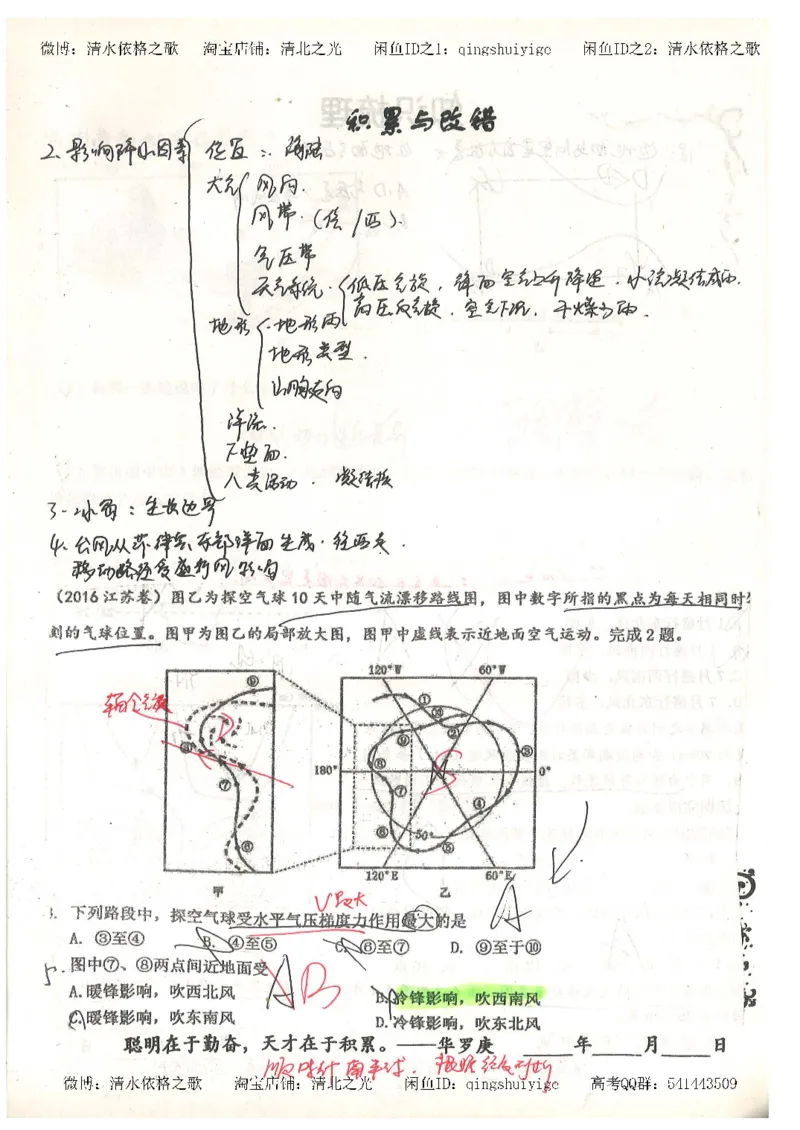 微博：清水依格之歌 淘宝店铺：清北之光 闲鱼ID之1：qingshuiyige 闲鱼ID之2：清水依格之歌
积累与改错
2. 影响降水因素 位置：海陆
大气 风向.
风带.（信/西）.
气压带
天气系统. 低压气旋，锋面空气上升降温，水汽凝结成雨.
高压反气旋，空气下沉，干燥少雨.
地形 地形雨
地形类型.
山脉走向
洋流.
下垫面.
人类活动. 凝结核
移动路径受盛行风影响
(2016江苏卷) 图乙为探空气球10天中随气流漂移路线图，图中数字所指的黑点为每天相同时
测的气球位置。图甲为图乙的局部放大图，图甲中虚线表示近地面空气运动。完成2题。
120°W 60°W
⑥ ⑦ ⑧
① ② ③ ④ ⑤ ⑥ ⑦ ⑧ ⑨ ⑩
180° 0°
50°
120°E 60°E
甲 乙
V最大
下列路段中，探空气球受水平气压梯度力作用最大的是 A
A. ③至④ B. ④至⑤ C. ⑥至⑦ D. ⑨至于⑩
5. 图中⑦、⑧两点间近地面受 A B
A.暖锋影响，吹西北风 B.冷锋影响，吹西南风
C.暖锋影响，吹东南风 D.冷锋影响，吹东北风
聪明在于勤奋，天才在于积累。——华罗庚 年 月 日
顺时针 南半球.
微博：清水依格之歌 淘宝店铺：清北之光 闲鱼ID：qingshuiyige 高考QQ群：541443509